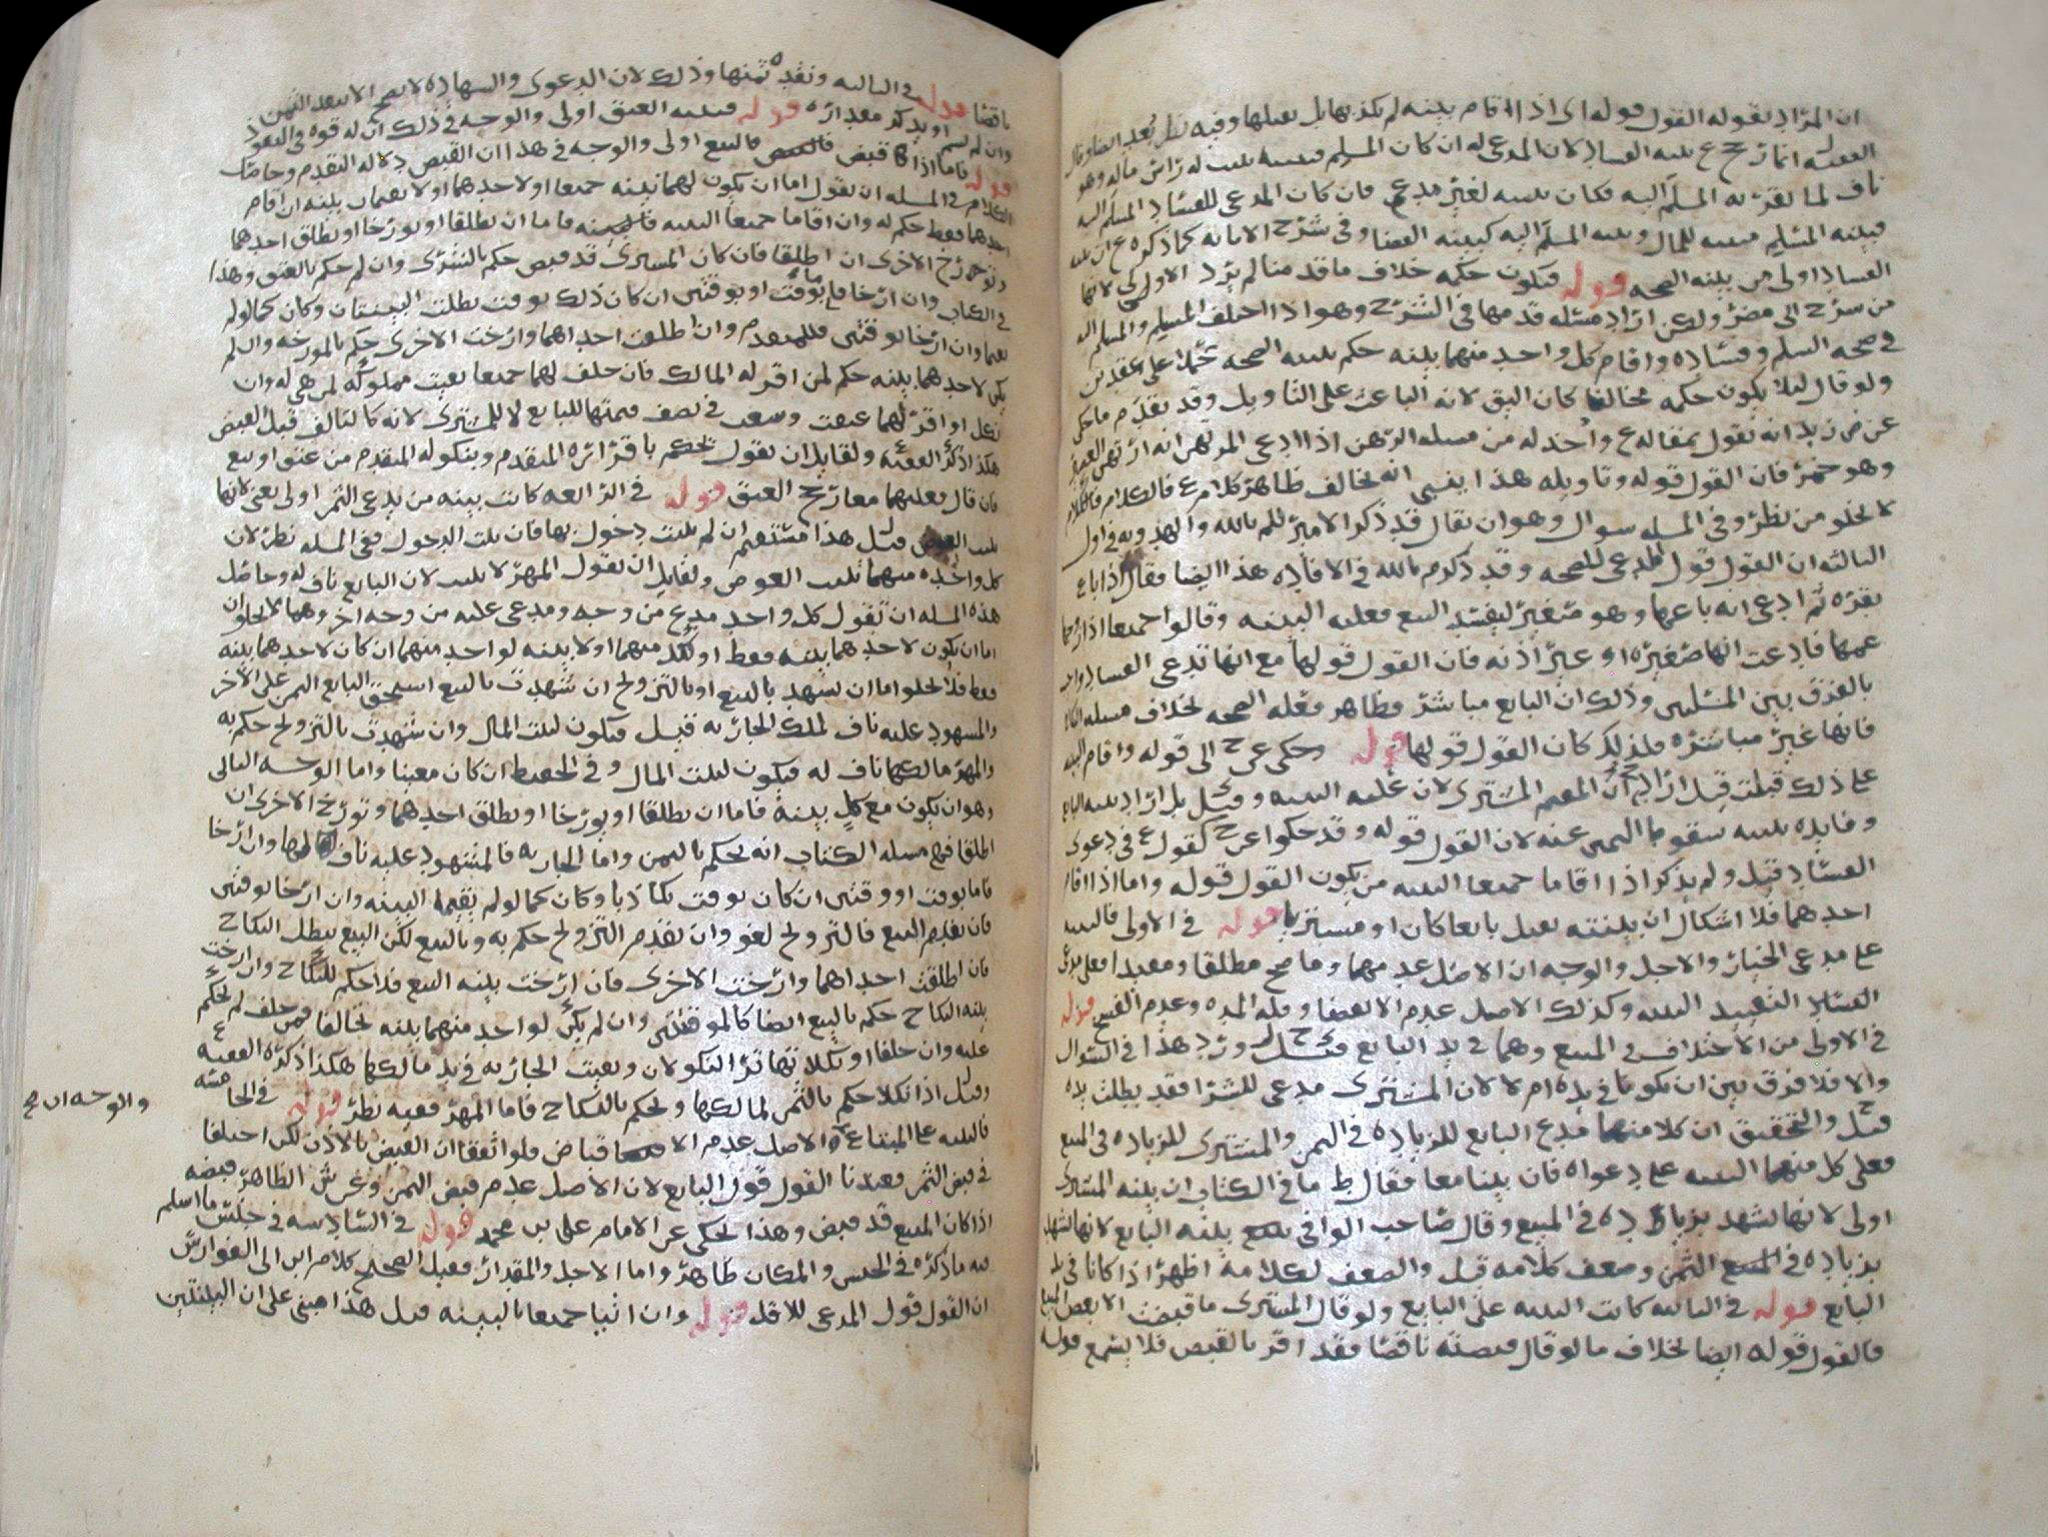 ان المراد بقوله القول قوله اي اذا اقام بينه لم يكذبها بل يقبلها وفيه نظر
الفقيه ع بينه الفساد لان المدعى له ان كان المسلم فبينته راس ماله وهو
ناف لما يقر به المسلم اليه فكان بينته لغير مدعي فان كان المدعي للفساد المسلم اليه
فبينه المسلم مبينه للمال وبينه المسلم اليه كبينه القضا وفي شرح الابانه كما ذكره ع ان بينه
الفساد اولى من بينه الصحه قوله فيكون حكمه خلاف ما قدمنا لم يرد الاولى لانها
من شرح الى مضر ولكن اراد مسئله قدمها في الشرح وهو اذا اختلف المسلم والمسلم اليه
في صحه السلم وفساده واقام كل واحد منهما بينه حكم ببينه الصحه حملا على عقدين
ولو قال ليلا يكون حكمه مخالفا كان اليق لانه الباعث على التاويل وقد تقدم ما حكي
عن ض زيد انه يقول بمقاله ع واخذ له من مسله الرهن اذا ادعى المرتهن انه ارتهن العصير
وهو خمر فان القول قوله وتاويله هذا ينبي انه مخالف ظاهر كلام ع فالكلام
لا يخلو من نظر وفي المسله سوال وهو ان يقال قد ذكر الامير م بالله والهدويه في اول
الثالثه ان القول قول المدعي للصحه وقد ذكر م بالله في الافاده هذا ايضا فقال اذا باع
بقره ثم ادعى انه باعها وهو صغير ليفسد البيع فعليه البينه وقالوا جميعا اذا زوجها
عمها فادعت انها صغيره او عير اذنه فان القول قولها مع انها تدعي الفساد
بالفرق بين المسلتين وذلك ان البايع مباشر فظاهر فعله الصحه بخلاف مسله النكاح
فانها غير مباشره فلذلك كان القول قولها قوله وحكى عن ح الى قوله واقام البينه
على ذلك قبلت قيل اراد ح ان المقيم المشتري لان عليه البينه وقيل بل اراد بينه البايع
وفايده بينته سقوط اليمين عنه لان القول قوله وقد حكوا عن ح كقول ع في دعوى
الفساد قيل ولم يذكر اذا اقاما جميعا البينه من يكون القول قوله واما اذا اقام
احدهما فلا اشكال ان بينته تقبل بايعا كان او مشتريا قوله في الاولى فالبينه
على مدعي الخيار والاجل والوجه ان الاصل عدمهما وما صح مطلقا ومقيدا فعلى مدعي
الفساد التقييد البينه وكذلك الاصل عدم الانقضا وقله المده وعدم الفسخ قوله
في الاولى من الاختلاف في المبيع وهما في يد البايع ورد هذا في السوال
والا فلا فرق بين ان يكونا في يده ام لا لان المشتري مدعي للشرا فقد بطلت يده
قيل ح والتحقيق ان كلا منهما مدع البايع للزياده في الثمن والمشتري للزياده في المبيع
فعلى كل منهما البينه على دعواه فان بينا معا فقال ط ما في الكتاب ان بينه المشتري
اولى لانها تشهد بزياده في المبيع وقال صاحب الوافي بينه البايع لانها تشهد
بزياده في الثمن وضعف كلامه قيل والضعف لكلامه اظهر اذا كانا في يد
البايع قوله في الثانيه كانت البينه على البايع ولو قال المشتري ما قبضت الا بعض المبيع
فالقول قوله ايضا بخلاف ما لو قال قبضته ناقصا فقد اقر بالقبض فلا يسمع قوله
ناقصا قوله في الثالثه ونقده ثمنها وذلك لان الدعوى والشهاده لا يصح الا بنقد الثمن
وان لم يسم او يذكر مقداره قوله فبينه العتق اولى والوجه في ذلك ان له قوه في النفوذ
قوله فاما اذا قبض فالبيع اولى والوجه في هذا ان القبض دلاله التقدم وحاصل
الكلام في المسله ان يقول اما ان يكون لهما بينه جميعا او لاحدهما او لا يقيمان بينه ان اقام
احدهما فقط حكم له وان اقاما جميعا البينه فاما ان يطلقا او يورخا او يطلق احدهما
وتورخ الاخرى ان اطلقا فان كان المشتري قد قبض حكم بالشرى وان لم حكم بالعتق وهذا
في الكتاب وان ارخا فاما بوقت او بوقتين ان كان ذلك بوقت بطلت البينتان وكان كما لو لم
يقيما وان ارخا بوقتين فللمتقدم وان اطلقت احداهما وارخت الاخرى حكم بالمورخه وان لم
يكن لاحدهما بينه حكم لمن اقر له المالك فان حلف لهما جميعا بقيت مملوكه لمن هي له وان
نكل او اقر لهما عتقت وسعت في نصف قيمتها للبايع لا للمشتري لانه كالتالف قبل القبض
هكذا ذكر الفقيه ع ولقايل ان يقول تحكم باقراره المتقدم وبنكوله المتقدم من عتق او بيع
فان قال بعليهما معا رجح العتق قوله في الرابعه كانت بينه من يدعي الثمن اولى يعني لانها
قيل هذا مستقيم ان لم يثبت دخول بها فان ثبت الدخول ففي المسله نظر لان
كل واحده منهما تثبت العوض ولقايل ان يقول المهر لا يثبت لان البايع ناف له وحاصل
هذه المسله ان تقول كل واحد مدع من وجه ومدعى عليه من وجه اخر وهما لا يخلوان
اما ان يكون لاحدهما بينه فقط او لكل منهما او لا بينه لواحد منهما ان كان لاحدهما بينه
فقط فلا يخلو اما ان تشهد بالبيع او بالتزويج ان شهدت بالبيع استحق البايع الثمن على الاخر
والمشهود عليه ناف لملك الجاريه فيكون لبيت المال وان شهدت بالتزويج حكم به
والمهر مالكها ناف له فيكون لبيت المال ان كان معينا واما الوجه الثاني
وهو ان يكون مع كل بينه فاما ان يطلقا او يورخا او يطلق احدهما وتورخ الاخرى ان
اطلقا فهي مسله الكتاب انه يحكم بالثمن واما الجاريه فالمشهود عليه ناف لها وان ارخا
فاما بوقت او وقتين ان كان بوقت تكاذبا وكان كما لو لم يقيما البينه وان ارخا بوقتين
فان تقدم البيع فالتزويج لغو وان تقدم التزويج حكم به وبالبيع لكن البيع يبطل النكاح
فان اطلقت احداهما وارخت الاخرى فان ارخت بينه البيع فلا حكم للنكاح وان ارخت
بينه النكاح حكم بالبيع ايضا كالموقتتين وان لم يكن لواحد منهما بينه تحالفا فمن حلف لم يحكم
عليه وان حلفا او نكلا تهاترا النكولان وبقيت الجاريه في يد مالكها هكذا ذكره الفقيه ع
وقيل اذا نكلا حكم بالثمن لمالكها ويحكم بالنكاح فاما المهر ففيه نظر قوله في الخامسه
فالبينه على المبتاع والوجه ان صح الاصل عدم الاقباض فلو اتفقا ان القبض بالاذن لكن اختلفا
في قبض الثمن فعندنا القول قول البايع لان الاصل عدم قبض الثمن وعن ش الظاهر قبضه
اذا كان المبيع قد قبض وهذا يحكى عن الامام علي بن محمد قوله في السادسه في جنس ما اسلم
فيه ما ذكره في الجنس والمكان ظاهر واما الاجل والمقدار فقيل الصحيح كلام ابن ابي الفوارس
ان القول قول المدعي للاقل قوله وان اتيا جميعا بالبينه قيل هذا مبني على ان البينتين